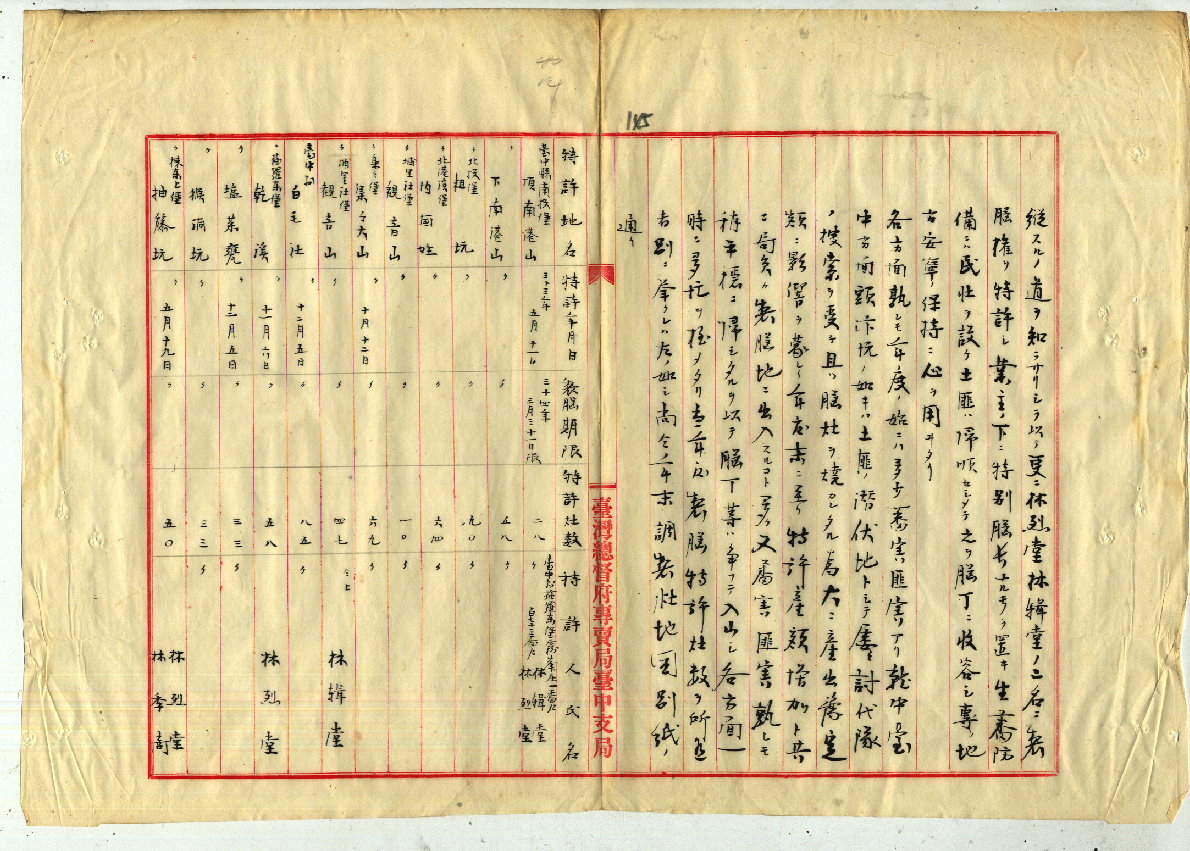 145
縱スルノ道ヲ知ラサリシヲ以テ更ニ林烈堂林輯堂ノ二名ニ製
腦権ヲ特許シ業主ノ下ニ特別腦長ナルモノヲ置キ生蕃防
備ニハ民壮ヲ設ケ土匪ハ帰順セシメテ之ヲ腦丁ニ收容シ専ラ地
方安寧ノ保持ニ心ヲ用ヰタリ
各方面孰レモ年度ノ始ニハ多少蕃害匪害アリ就中臺
中方面頭汴坑ノ如キハ土匪ノ潜伏地トシテ屡々討伐隊
ノ捜索ヲ受ケ且ツ腦灶ヲ焼カレタル為大ニ産出豫定
額ニ影響ヲ蒙レリ年度末ニ至リ特許産額増加ト共
ニ局員ノ製腦地ニ出入スルコト多ク又蕃害匪害孰レモ
稍平穏ニ帰シタルヲ以テ腦丁等ハ争フテ入山シ各方面一
時ニ多忙ヲ極メタリ本年度製腦特許灶数ヲ所在
者別ニ挙クレハ左ノ如シ尚今年末調製灶地図別紙ノ
通リ
特許地名 特許年月日 製腦期限 特許灶数 特許人氏名
臺中縣南投堡 頂南港山 三十三年五月十一日 三十四年三月三十一日限 二八 林輯堂 林烈堂
〃 下南港山 〃 〃 五八 〃
〃北投堡 坑 〃 〃 九〇 〃
〃北港溪堡 内国姓 〃 〃 六四 〃
〃埔里社堡 観音山 〃 〃 一〇 〃
〃集々堡 集々大山 十月十二日 〃 六九 〃
〃埔里社堡 観音山 〃 〃 四七 仝上 林輯堂
臺中 白毛社 十二月五日 〃 八五 〃
〃 乾溪 十一月六日 〃 五八 〃 林烈堂
〃 十一月五日 〃 三三 〃
〃 坑 〃 〃 三三 〃
〃揀東上堡 抽藤坑 五月十九日 〃 五〇 〃 林烈堂 林季商
臺灣總督府專賣局臺中支局